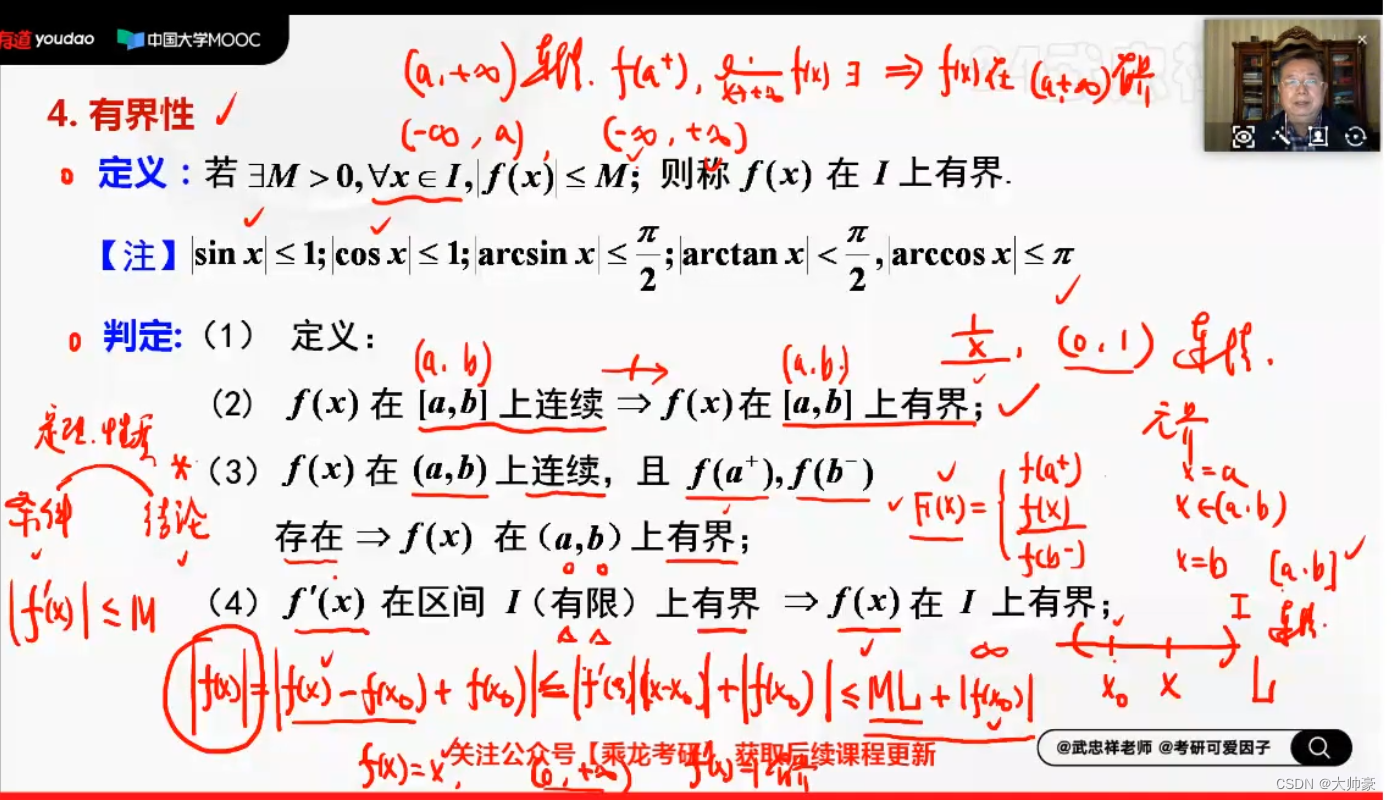 有道 youdao 中国大学MOOC
(a,+∞)连续. f(a⁺), lim x→+∞ f(x) ∃ ⇒ f(x)在(a,+∞)有界
(-∞, a), (-∞, +∞)
4. 有界性 ✓
定义：若 ∃M > 0, ∀x ∈ I, |f(x)| ≤ M; 则称 f(x) 在 I 上有界.
【注】|sin x| ≤ 1; |cos x| ≤ 1; |arcsin x| ≤ π/2; |arctan x| < π/2, |arccos x| ≤ π
判定:（1） 定义：
1/x, (0,1) 连续.
(a,b) ↛ (a,b)
（2） f(x) 在 [a,b] 上连续 ⇒ f(x)在 [a,b] 上有界;
无界
定理.性质
条件 结论
*（3） f(x) 在 (a,b) 上连续，且 f(a⁺), f(b⁻)
存在 ⇒ f(x) 在 (a,b) 上有界;
F(x) = { f(a⁺) x=a
f(x) x∈(a,b)
f(b⁻) x=b
[a,b] 连续.
（4） f′(x) 在区间 I（有限）上有界 ⇒ f(x) 在 I 上有界;
|f′(x)| ≤ M
I
x₀ x L
∞
|f(x)| = |f(x) - f(x₀) + f(x₀)| ≤ |f′(ξ)||x-x₀| + |f(x₀)| ≤ ML + |f(x₀)|
关注公众号【乘龙考研】获取后续课程更新
f(x)=x, (0,+∞) f′(x)=1
@武忠祥老师 @考研可爱因子
CSDN @大帅豪